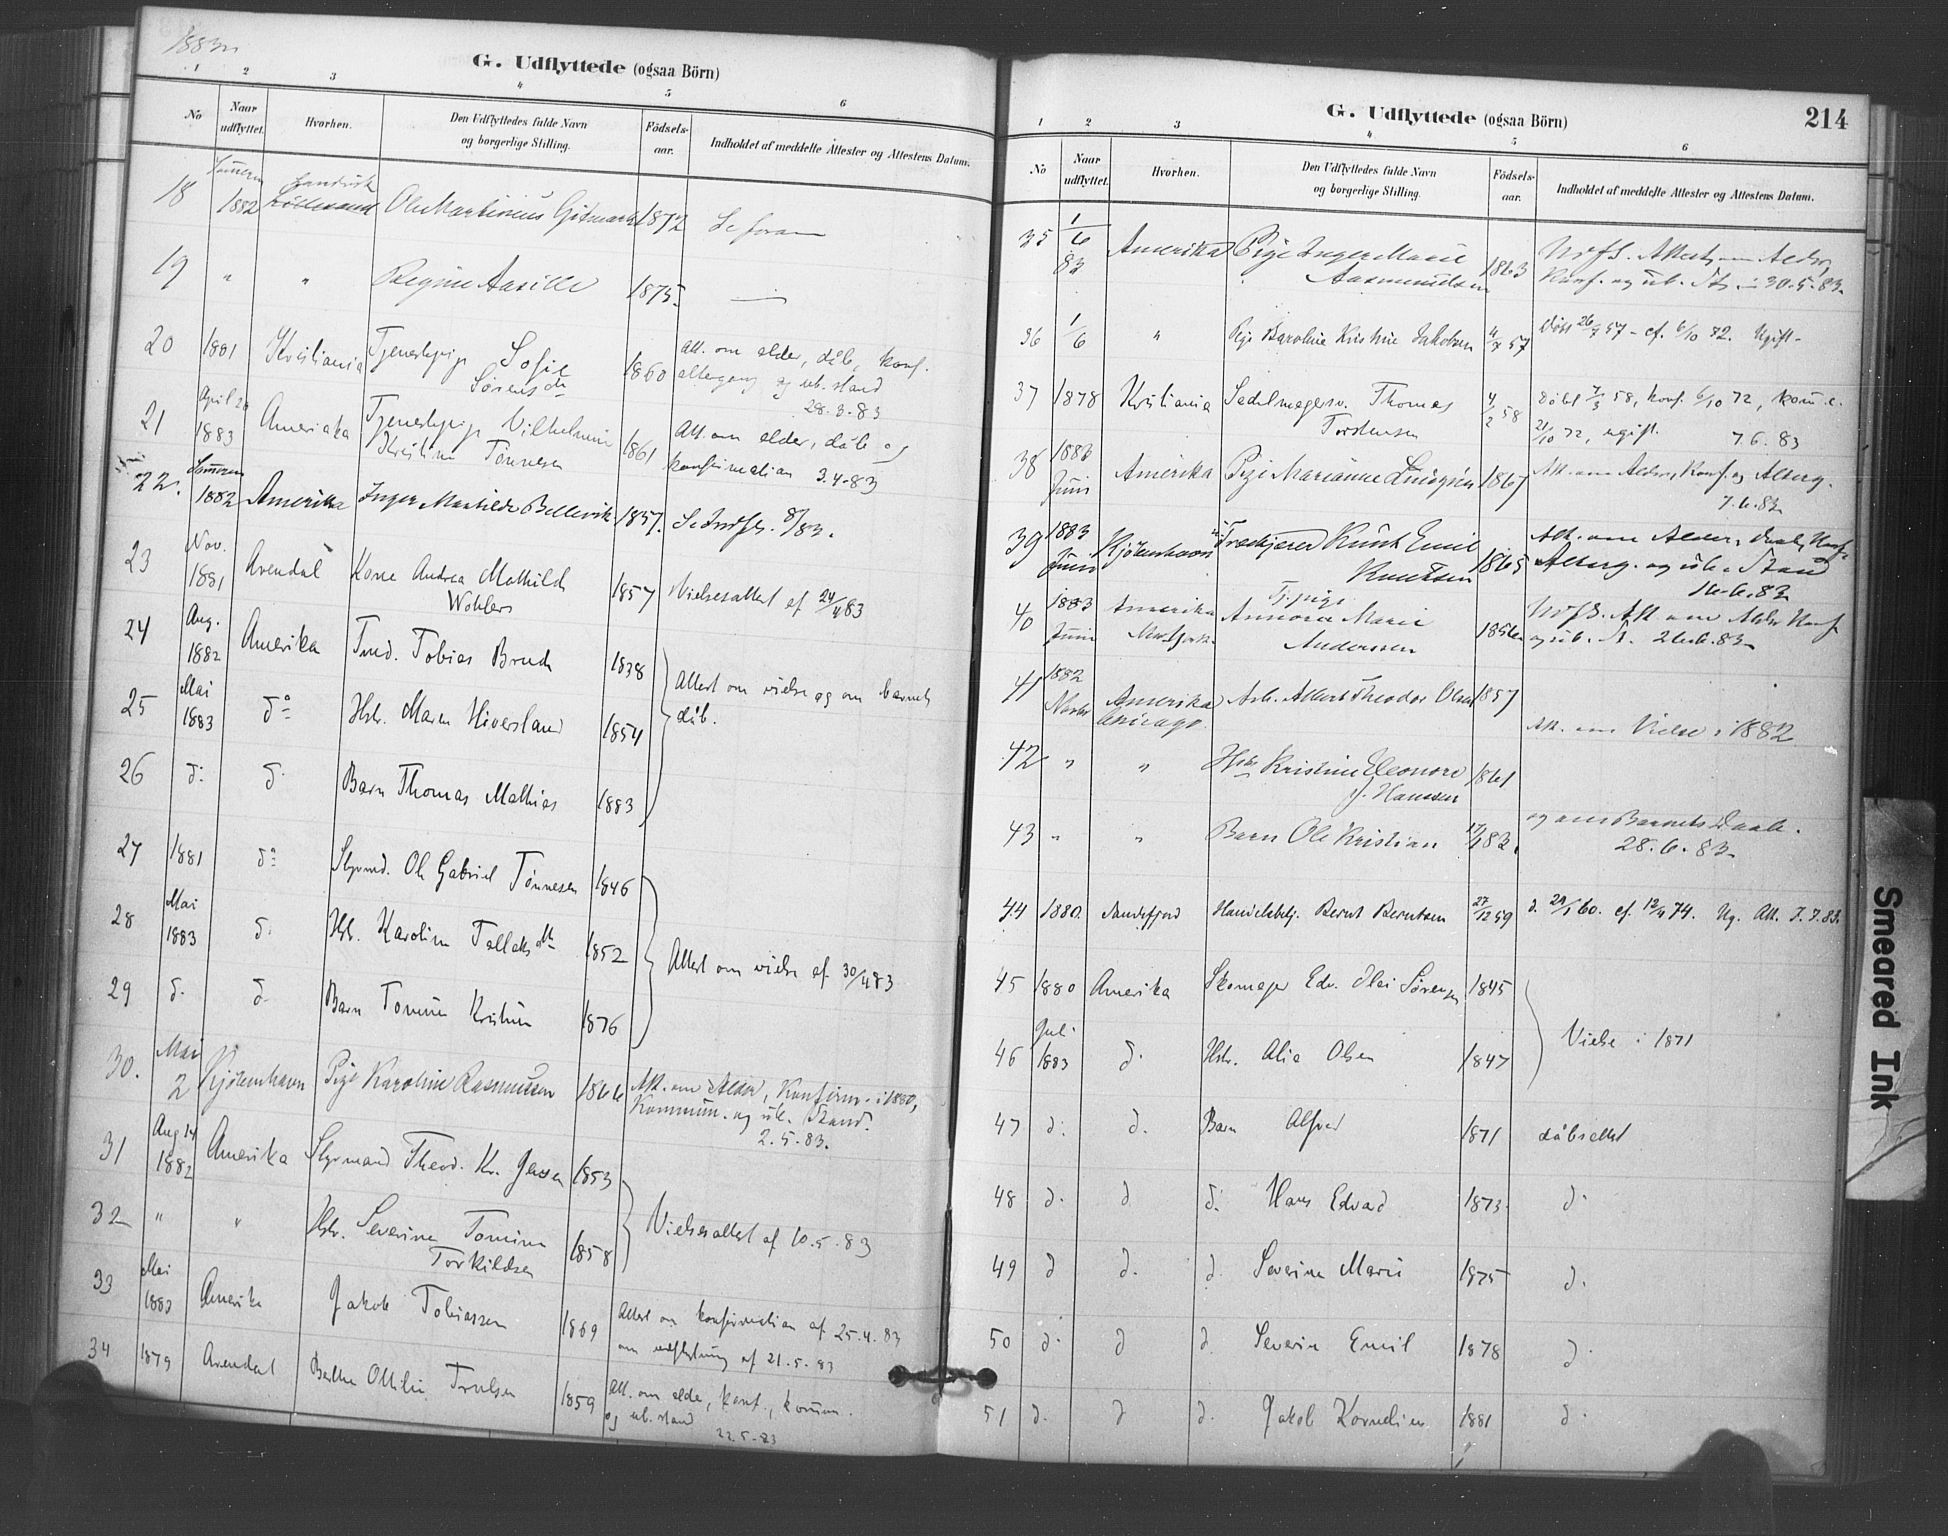 1883
G. Udflyttede (ogsaa Börn)
1 2 3 4 5 6
No
Naar udflyttet.
Hvorhen.
Den Udflyttedes fulde Navn og borgerlige Stilling.
Födsels-aar.
Indholdet af meddelte Attester og Attestens Datum.
18 1882 Ole Martinius Gitmark 1872
19 " " Regine 1875 —
20 1881 Kristiania Tjenestepige Sofie Sørensdtr 1860 Att. om alder, dåb, konf. altergang og ub. stand 28.3.83
21 April 20 1883 Ameriaka Tjenestepige Vilhelmine Kristine Tønnesen 1861 Att. om alder, dåb og konfirmation 3.4.83
22. Sommeren 1882 Amerika Inger Mathilde Bellevik 1857. 8/83.
23 Nov. 1881 Arendal Kone Andrea Mathilde Wohlers 1857 Vielsesattest af 24/4 83
24 Aug. 1882 Amerika Tobias Bruch 1838 Attest om vielse og om barnets dåb.
25 Mai 1883 do Hstr. Maren Hiversland 1854
26 d: d. Barn Thomas Mathias 1883
27 1881 do Styrmd. Ole Gabriel Tønnesen 1846
28 Mai 1883 d. Hstr. Karoline Tellefsdtr 1852 Attest om vielse af 30/4 83
29 d. d. Barn Tomine Kristine 1876
30. Mai 2 Kjöbenhavn Pige Karoline Rasmussen 1866 Att. om Alder, Konfirm. i 1880, Kommun. og ub. Stand. 2.5.83.
31 Aug 14 1882 Amerika Styrmand Theod. Kr. Jensen 1853
32 " " Hstr. Severine Tomine Torkildsen 1858 Vielsesattest af 10.5.83
33 Mai 1883 Amerika Jakob Tobiassen 1869 Attest om konfirmation af 25.4.83 om udflytning af 21.5.83
34 1879 Arendal Berthe Ottilie Truelsen 1859 Att. om alder, konf., kommun. og ub. stand 22.5.83
G. Udflyttede (ogsaa Börn)
214
1 2 3 4 5 6
No
Naar udflyttet.
Hvorhen.
Den Udflyttedes fulde Navn og borgerlige Stilling.
Födsels-aar.
Indholdet af meddelte Attester og Attestens Datum.
35 1/6 83 Amerika Pige Inger Marie Aasmundsen 1863 Attest om Alder, Konf. og ub. St. 30.5.83.
36 1/6 " Pige Baroline Kristine Jakobsen 4/7 57 døbt 26/7 57 - cf. 6/10 72. Ugift-
37 1878 Kristiania Sadelmagersv. Thomas Torstensen 4/2 58 døbt 7/3 58, konf. 6/10 72, kom. 21/10 72, ugift. 7.6.83
38 1883 Juni Amerika Pige Marianne Lindqvist 1867 Att. om Alder, Konf. og Alterg. 7.6.83
39 1883 Juni Kjöbenhavn Knut Emil Knutsen 1865 Att. om Alder, Daab, Konf. Alterg. og ub. Stand 16.6.83
40 1883 Juni Amerika Tj.pige Annora Marie Anderssen 1856 Att. om Alder Konf. og ub. St. 26.6.83
41 1882 Amerika Chicago. Arb. Albert Theodor Olsen 1857 Att. om Vielse i 1882
42 " " Hstr Kristine Eleonore J. Hanssen 1861
43 " " Barn Ole Kristian 17/4 83. og om Barnets Daab. 28.6.83
44 1880. Sandefjord Handelsbetj. Bernt Berntsen 27/12 59 d. 29/1 60. cf. 12/4 74. Ug. Att. 7.7.83.
45 1880 Amerika Skomager Edv. Olai Sørensen 1845
46 Juli 1883 d. Hstr. Alie Olsen 1847 Vielse i 1871
47 d. d. Barn Alfred 1871 dåbsattest
48 d. d d. Hans Edvard 1873 d.
49 d d. d. Severine Marie 1875 d.
50 d. d d. Severin Emil 1878 d.
51 d. d d. Jakob Kornelius 1881 d.
Smeared Ink